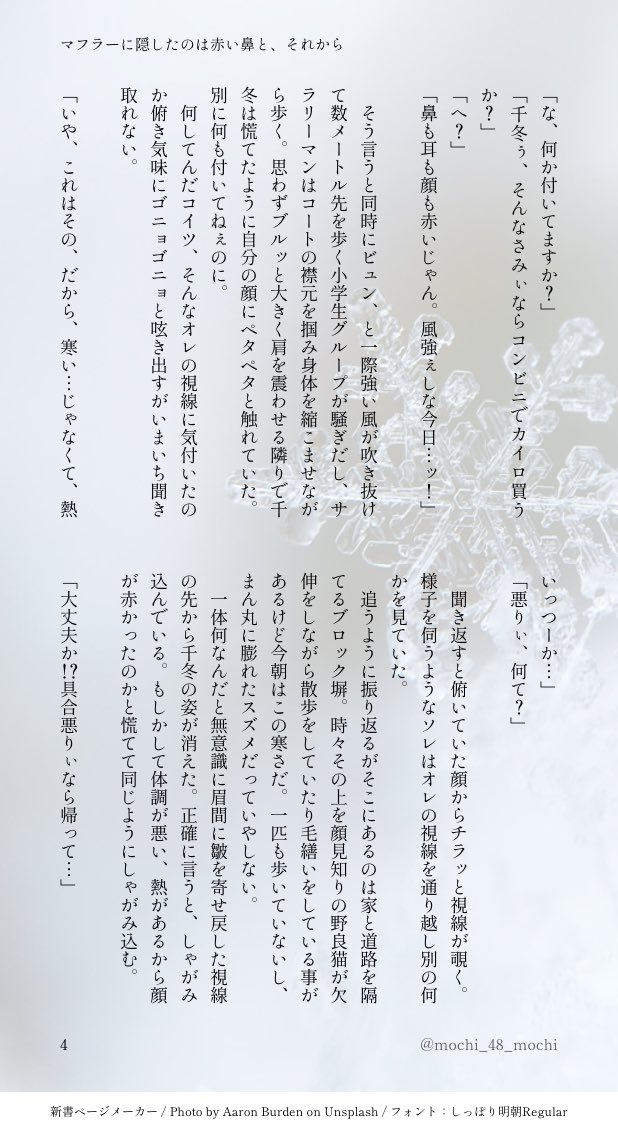 マフラーに隠したのは赤い鼻と、それから
「な、何か付いてますか？」
「千冬ぅ、そんなさみぃならコンビニでカイロ買う
か？」
「へ？」
「鼻も耳も顔も赤いじゃん。風強ぇしな今日…ッ！」
そう言うと同時にビュン、と一際強い風が吹き抜け
て数メートル先を歩く小学生グループが騒ぎだし、サ
ラリーマンはコートの襟元を掴み身体を縮こませなが
ら歩く。思わずブルッと大きく肩を震わせる隣りで千
冬は慌てたように自分の顔にペタペタと触れていた。
別に何も付いてねぇのに。
何してんだコイツ、そんなオレの視線に気付いたの
か俯き気味にゴニョゴニョと呟き出すがいまいち聞き
取れない。
「いや、これはその、だから、寒い…じゃなくて、熱
いっつーか…」
「悪りぃ、何て？」
聞き返すと俯いていた顔からチラッと視線が覗く。
様子を伺うようなソレはオレの視線を通り越し別の何
かを見ていた。
追うように振り返るがそこにあるのは家と道路を隔
てるブロック塀。時々その上を顔見知りの野良猫が欠
伸をしながら散歩をしていたり毛繕いをしている事が
あるけど今朝はこの寒さだ。一匹も歩いていないし、
まん丸に膨れたスズメだっていやしない。
一体何なんだと無意識に眉間に皺を寄せ戻した視線
の先から千冬の姿が消えた。正確に言うと、しゃがみ
込んでいる。もしかして体調が悪い、熱があるから顔
が赤かったのかと慌てて同じようにしゃがみ込む。
「大丈夫か!?具合悪りぃなら帰って…」
4
@mochi_48_mochi
新書ページメーカー / Photo by Aaron Burden on Unsplash / フォント：しっぽり明朝Regular